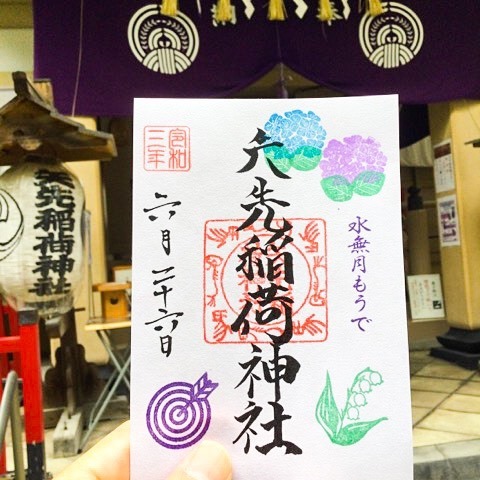 矢先稲荷神社
令和
三年
六月二十六日
水無月もうで
矢先稲荷神社